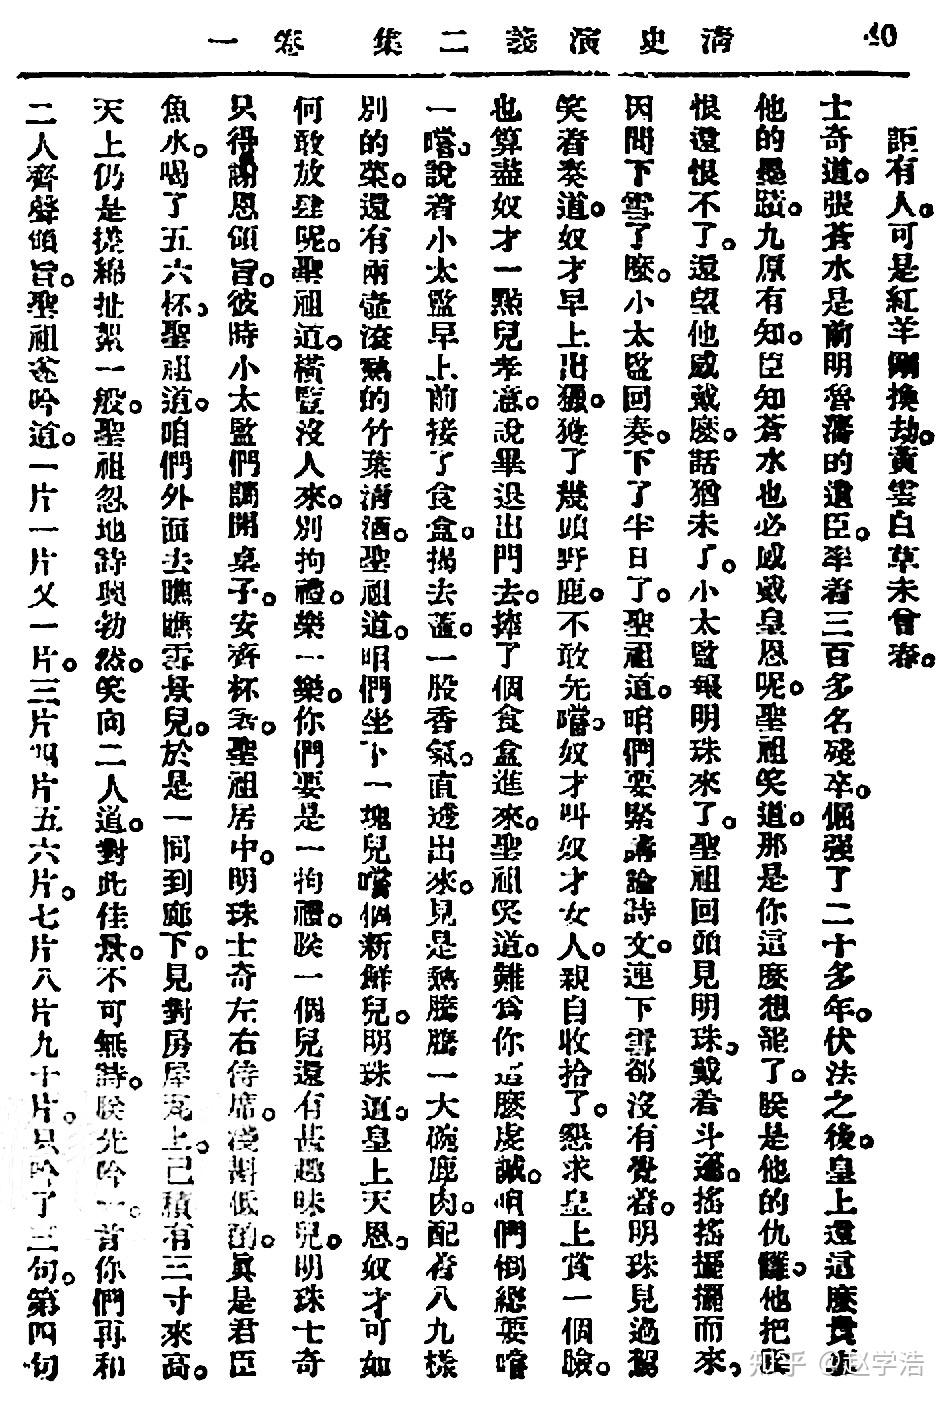 40
清史演義二集　卷一
詎有人。可是紅羊剛換劫。黃雲白草未曾春。
士奇道。張蒼水是前明魯藩的遺臣。率着三百多名殘卒。倔强了二十多年。伏法之後。皇上還這麽
他的墨蹟。九原有知。臣知蒼水也必感戴皇恩呢。聖祖笑道。那是你這麽想罷了。朕是他的仇讎。他把朕
恨還恨不了。還望他感戴麽。話猶未了。小太監報明珠來了。聖祖回頭見明珠。戴着斗篷。搖搖擺擺而來。
因問下雪了麽。小太監回奏。下了半日了。聖祖道。咱們要緊講論詩文。連下雪都沒有覺着。明珠見過駕
笑着奏道。奴才早上出獵。獲了幾頭野鹿。不敢先嚐。奴才叫奴才女人。親自收拾了。懇求皇上賞一個臉。
也算盡奴才一點兒孝意。說畢退出門去。捧了個食盒進來。聖祖笑道。難爲你這麽虔誠。咱們倒總要嚐
一嚐。說着小太監早上前接了食盒。揭去蓋。一股香氣。直透出來。見是熱騰騰一大碗鹿肉。配着八九樣
別的菜。還有兩壺滾熱的竹葉清酒。聖祖道。咱們坐下一塊兒嚐個新鮮兒。明珠道。皇上天恩。奴才可如
何敢放肆呢。聖祖道。橫豎沒人來。別拘禮。樂一樂。你們要是一拘禮。朕一個兒還有甚趣味兒。明珠士奇
只得謝恩領旨。彼時小太監們調開桌子。安齊杯箸。聖祖居中。明珠士奇左右侍席。淺斟低酌。眞是君臣
魚水。喝了五六杯。聖祖道。咱們外面去瞧瞧雪景兒。於是一同到廊下。見對房屋瓦上。已積有三寸來高。
天上仍是搓綿扯絮一般。聖祖忽地詩興勃然。笑向二人道。對此佳景。不可無詩。朕先吟一首你們再和
二人齊聲領旨。聖祖遂吟道。一片一片又一片。三片四片五六片。七片八片九十片。只吟了三句。第四句
知乎 @赵学浩